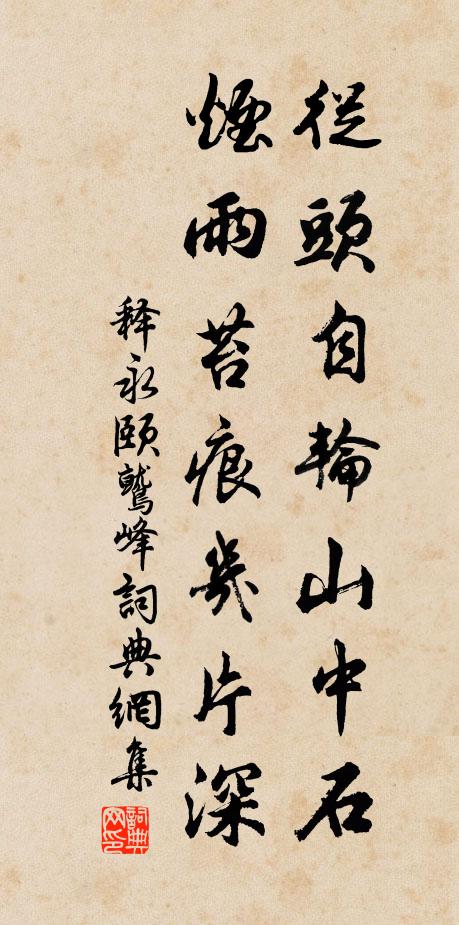 從頭自輪山中石
煙雨苔痕幾片深
释永頤鷲峰詞典網集
詞典网印